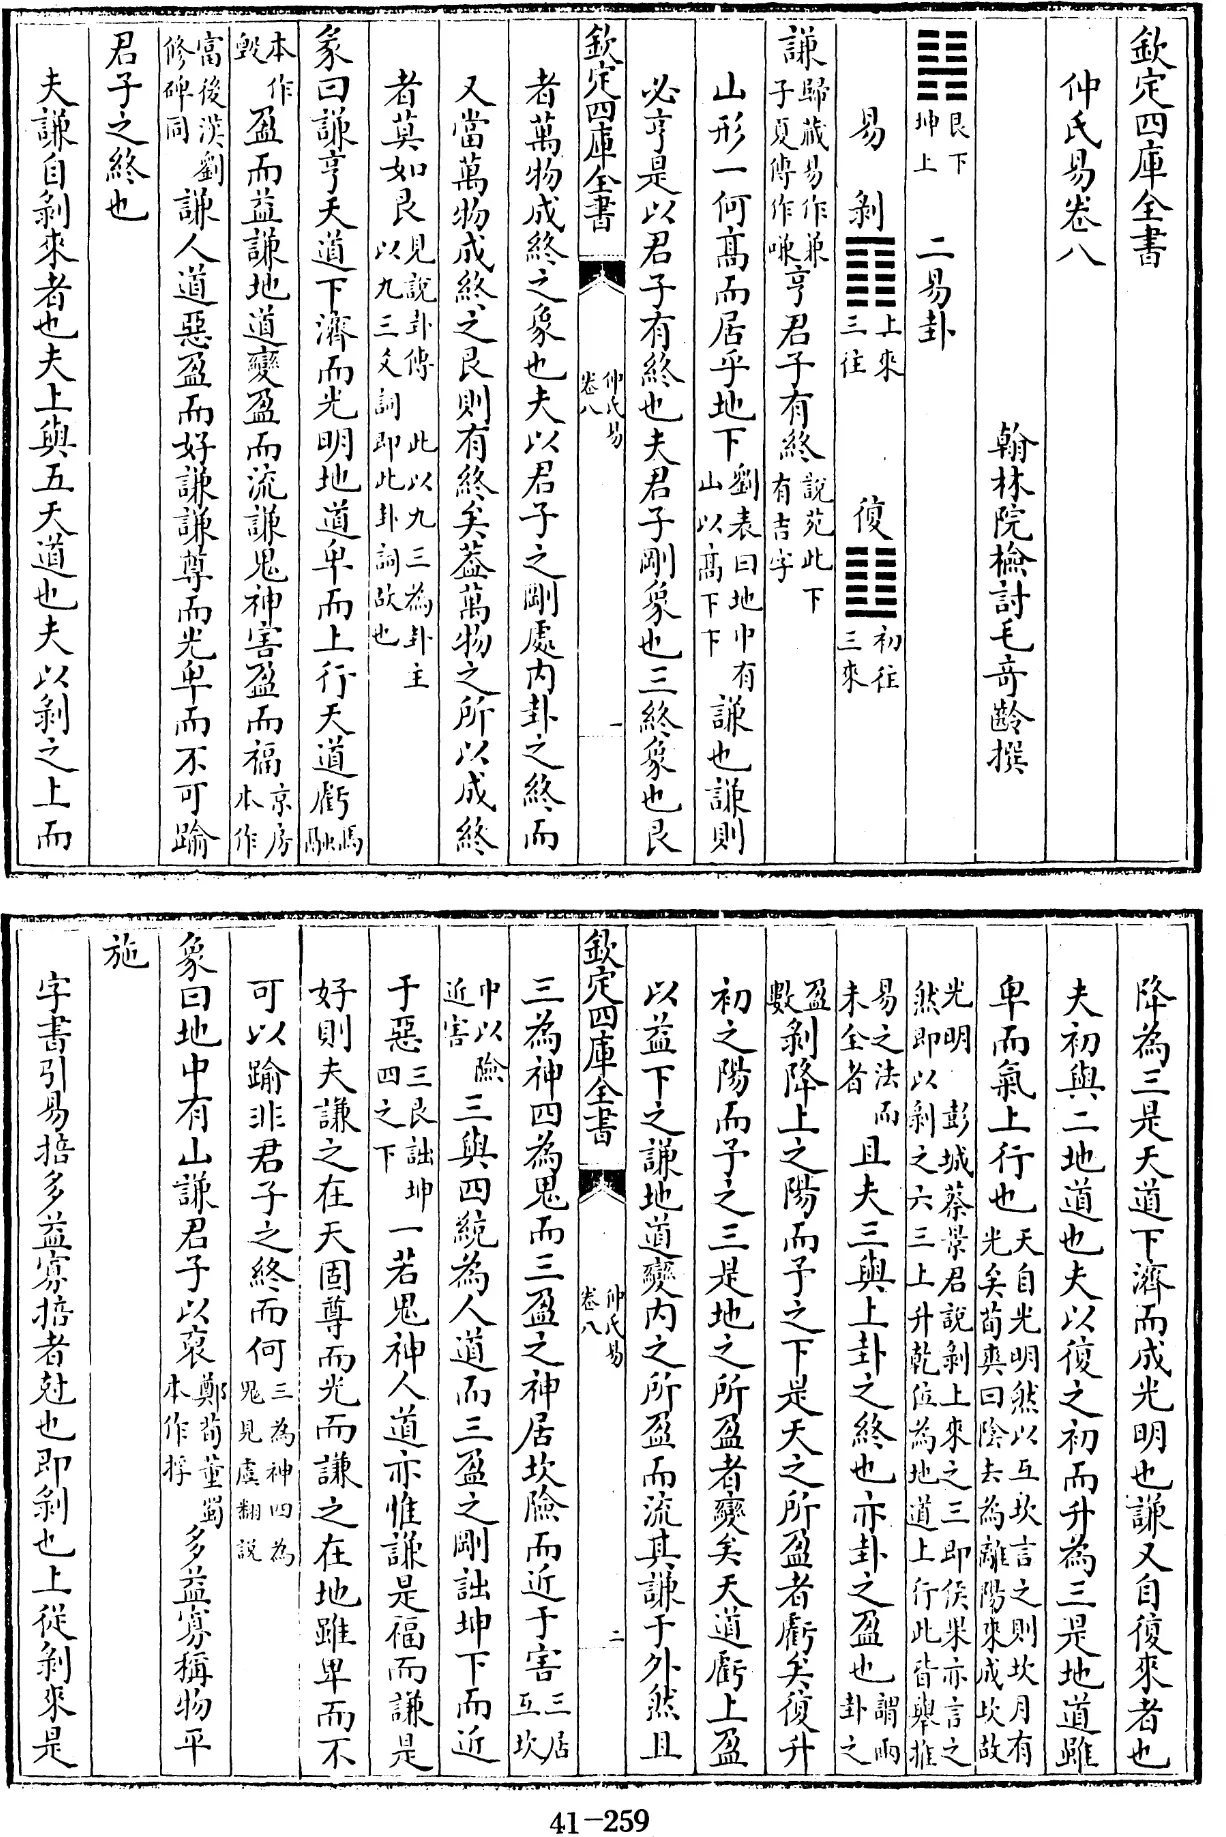 欽定四庫全書
仲氏易卷八
翰林院檢討毛奇齡撰
䷎艮下坤上 二易卦
易 剝䷖上來三往 復䷗初往三來
謙歸藏易作兼子夏傳作嗛亨君子有終說苑此下有吉字
山形一何髙而居乎地下劉表曰地中有山以髙下下謙也謙則
必亨是以君子有終也夫君子剛象也三終象也艮
欽定四庫全書 仲氏易卷八 一
者萬物成終之象也夫以君子之剛處内卦之終而
又當萬物成終之艮則有終矣葢萬物之所以成終
者莫如艮見說卦傳 此以九三為卦主以九三爻詞即此卦詞故也
彖曰謙亨天道下濟而光明地道卑而上行天道虧馬融
本作毀盈而益謙地道變盈而流謙鬼神害盈而福京房本作
富後漢劉修碑同謙人道惡盈而好謙謙尊而光卑而不可踰
君子之終也
夫謙自剝來者也夫上與五天道也夫以剝之上而
降為三是天道下濟而成光明也謙又自復來者也
夫初與二地道也夫以復之初而升為三是地道雖
卑而氣上行也天自光明然以互坎言之則坎月有光矣荀爽曰陰去為離陽來成坎故
光明 彭城蔡景君說剝上來之三即侯果亦言之然即以剝之六三上升乾位為地道上行此皆舉推
易之法而未全者且夫三與上卦之終也亦卦之盈也謂兩卦之
盈數剝降上之陽而予之下是天之所盈者虧矣復升
初之陽而予之三是地之所盈者變矣天道虧上盈
以益下之謙地道變内之所盈而流其謙于外然且
欽定四庫全書 仲氏易卷八 二
三為神四為鬼而三盈之神居坎險而近于害三居互坎
中以險近害三與四統為人道而三盈之剛詘坤下而近
于惡三艮詘坤四之下一若鬼神人道亦惟謙是福而謙是
好則夫謙之在天固尊而光而謙之在地雖卑而不
可以踰非君子之終而何三為神四為鬼見虞翻說
象曰地中有山謙君子以裒鄭荀董蜀本作捊多益寡稱物平
施
字書引易掊多益寡掊者尅也即剝也上從剝來是
41-259